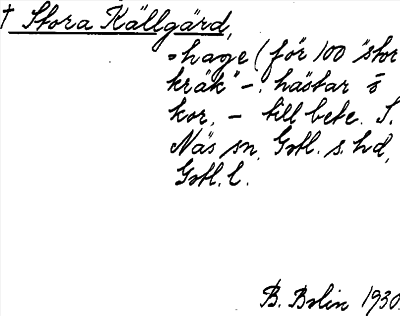 † Stora Källgärd,
-hage (för 100 "stor
kräk" –: hästar o
kor, – till bete. S.
Näs sn, Gotl. s. hd,
Gotl. l.
B. Bolin 1930.